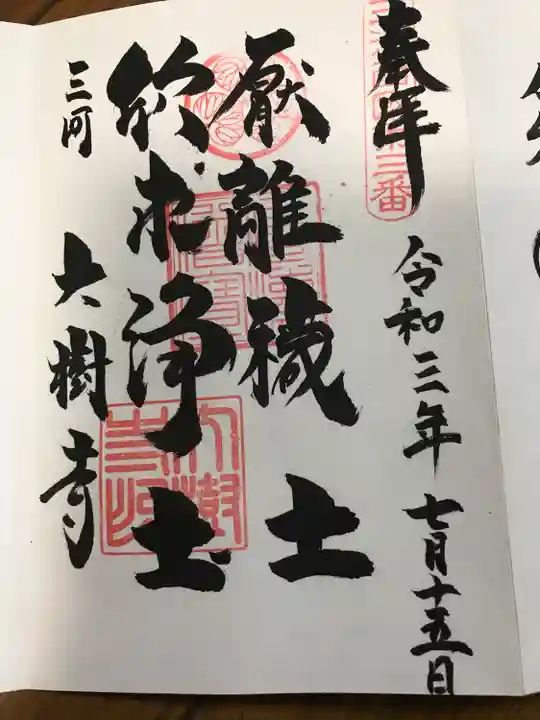 奉拝
令和三年七月十五日
厭離穢土
欣求浄土
三河
大樹寺